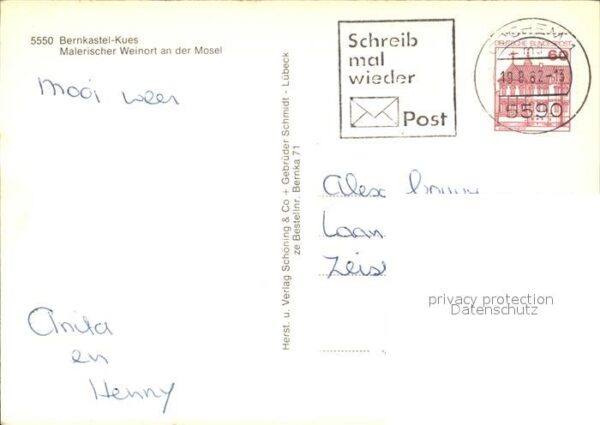 5550 Bernkastel-Kues
Malerischer Weinort an der Mosel
Mooi weer
Anita
en
Henny
Herst. u. Verlag Schöning & Co + Gebrüder Schmidt - Lübeck
ze Bestellnr. Bernka 71
Schreib
mal
wieder
Post
DEUTSCHE BUNDESPOST
60
19.8.82-13
5590
Alex
Laan
Zeis
privacy protection
Datenschutz